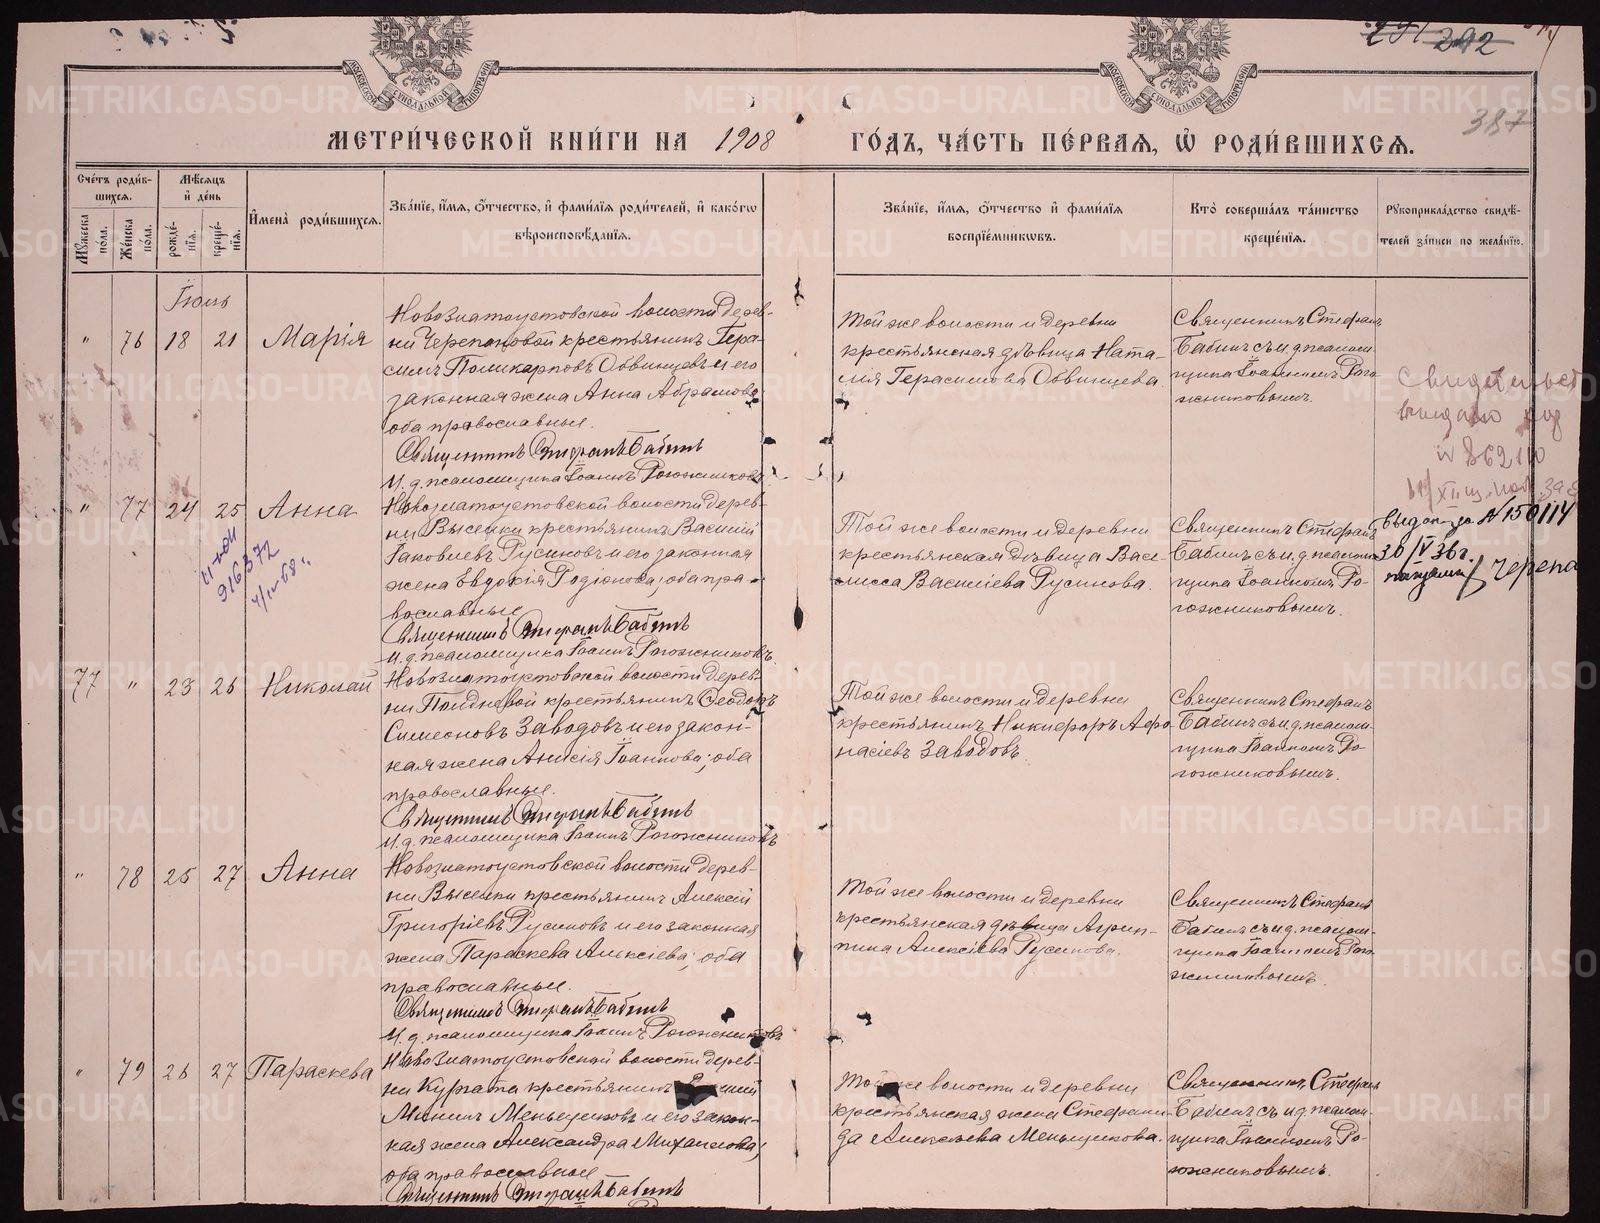 291 292
387
МОСКОВСКОЙ СѴНОДАЛЬНОЙ ТИПОГРАФІИ
МОСКОВСКОЙ СѴНОДАЛЬНОЙ ТИПОГРАФІИ
МЕТРИ́ЧЕСКОЙ КНИ́ГИ НА 1908 ГО́ДЪ, ЧА́СТЬ ПЕ́РВАѦ, Ѽ РОДИ́ВШИХСѦ.
Сче́тъ роди́в-
шихсѧ.
Мꙋ́жеска по́ла.
Же́нска по́ла.
Мѣ́сѧцъ
и҆ де́нь
рожде́-
нїѧ.
креще́-
нїѧ.
И҆мена̀ роди́вшихсѧ.
Зва́нїе, и҆́мѧ, ѻ҆́тчество, и҆ фами́лїѧ роди́телей, и҆ како́гѡ
вѣроисповѣ́данїѧ.
Зва́нїе, и҆́мѧ, ѻ҆́тчество и҆ фами́лїѧ
воспрїе́мникѡвъ.
Кто̀ соверша́лъ та́инство
креще́нїѧ.
Рꙋкоприкла́дство свидѣ́-
телей за́писи по жела́нїю.
Іюль
" 76 18 21 Марія
Новозлатоустовской волости дерев-
ни Черепановой крестьянинъ Гера-
симъ Поликарповъ Обвинцевъ и его
законная жена Анна Абрамова
оба православные.
Священникъ Стефанъ Бабинъ
И. д. псаломщика Іоаннъ Рогожниковъ
Той же волости и деревни
крестьянская дѣвица Ната-
лія Герасимова Обвинцева.
Священникъ Стефанъ
Бабинъ съ и. д. псалом-
щика Іоанномъ Рого-
жниковымъ.
Свидетельст
выдано
" 77 24 25 Анна
916372
Новозлатоустовской волости дерев-
ни Выселки крестьянинъ Василій
Іаковлевъ Русиновъ и его законная
жена Евдокія Родіонова; оба пра-
вославные
Священникъ Стефанъ Бабинъ
И. д. псаломщика Іоаннъ Рогожниковъ.
Той же волости и деревни
крестьянская дѣвица Васи-
лисса Василіева Русинова.
Священникъ Стефанъ
Бабинъ съ и. д. псалом-
щика Іоанномъ Ро-
гожниковымъ.
выдан за № 150114
30/V 36 г.
77 " 23 26 Николай
Новозлатоустовской волости дерев-
ни крестьянинъ Ѳеодоръ
Симеоновъ Заводовъ и его закон-
ная жена Анисія Іоаннова; оба
православные.
Священникъ Стефанъ Бабинъ
И. д. псаломщика Іоаннъ Рогожниковъ
Той же волости и деревни
крестьянинъ Никифоръ Афа-
насіевъ Заводовъ.
Священникъ Стефанъ
Бабинъ съ и. д. псалом-
щика Іоанномъ Ро-
гожниковымъ.
" 78 25 27 Анна
Новозлатоустовской волости дерев-
ни Выселки крестьянинъ Алексій
Григоріевъ Русиновъ и его законная
жена Параскева Алексіева; оба
православные.
Священникъ Стефанъ Бабинъ
И. д. псаломщика Іоаннъ Рогожниковъ
Той же волости и деревни
крестьянская дѣвица Агрип-
пина Алексіева Русинова.
Священникъ Стефанъ
Бабинъ съ и. д. псалом-
щика Іоанномъ Рого-
жниковымъ.
" 79 26 27 Параскева
Новозлатоустовской волости дерев-
ни Курлата крестьянинъ
Мининъ Меньщиковъ и его закон-
ная жена Александра Михаилова;
оба православные
Священникъ Стефанъ Бабинъ
Той же волости и деревни
крестьянская жена Стефани-
да Алексѣева Меньщикова.
Священникъ Стефанъ
Бабинъ съ и. д. псалом-
щика Іоанномъ Ро-
гожниковымъ.
METRIKI.GASO-URAL.RU